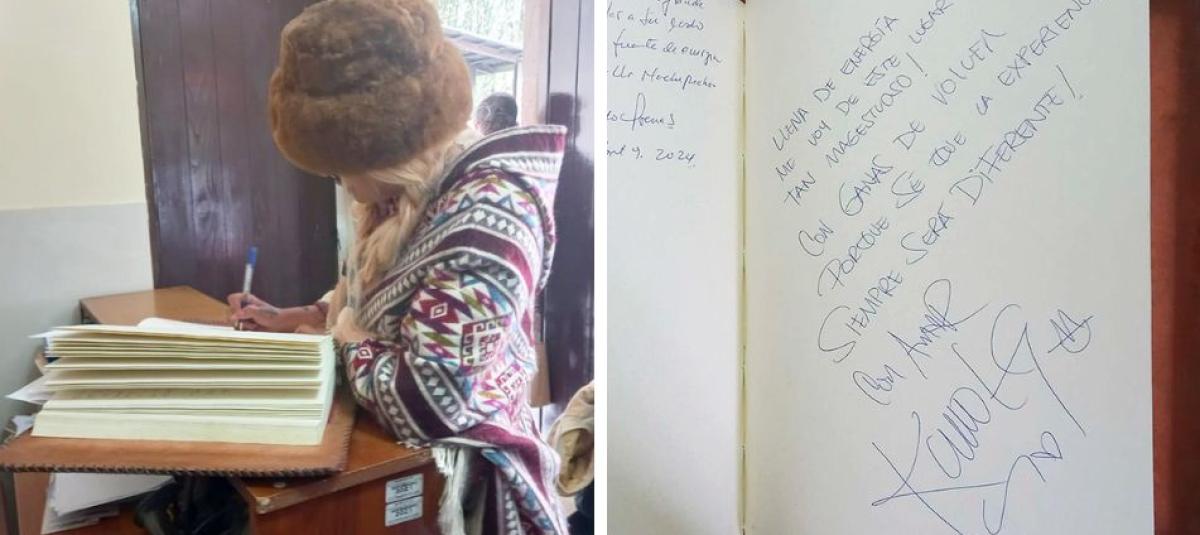 a tu lado
fuente de energia
Machupicchu
9. 2024
LLENA DE ENERGÍA
ME VOY DE ESTE LUGAR
TAN MAGESTUOSO!
CON GANAS DE VOLVER
PORQUE SE QUE LA EXPERIENC
SIEMPRE SERÁ DIFERENTE!
CON AMOR
KAROL G